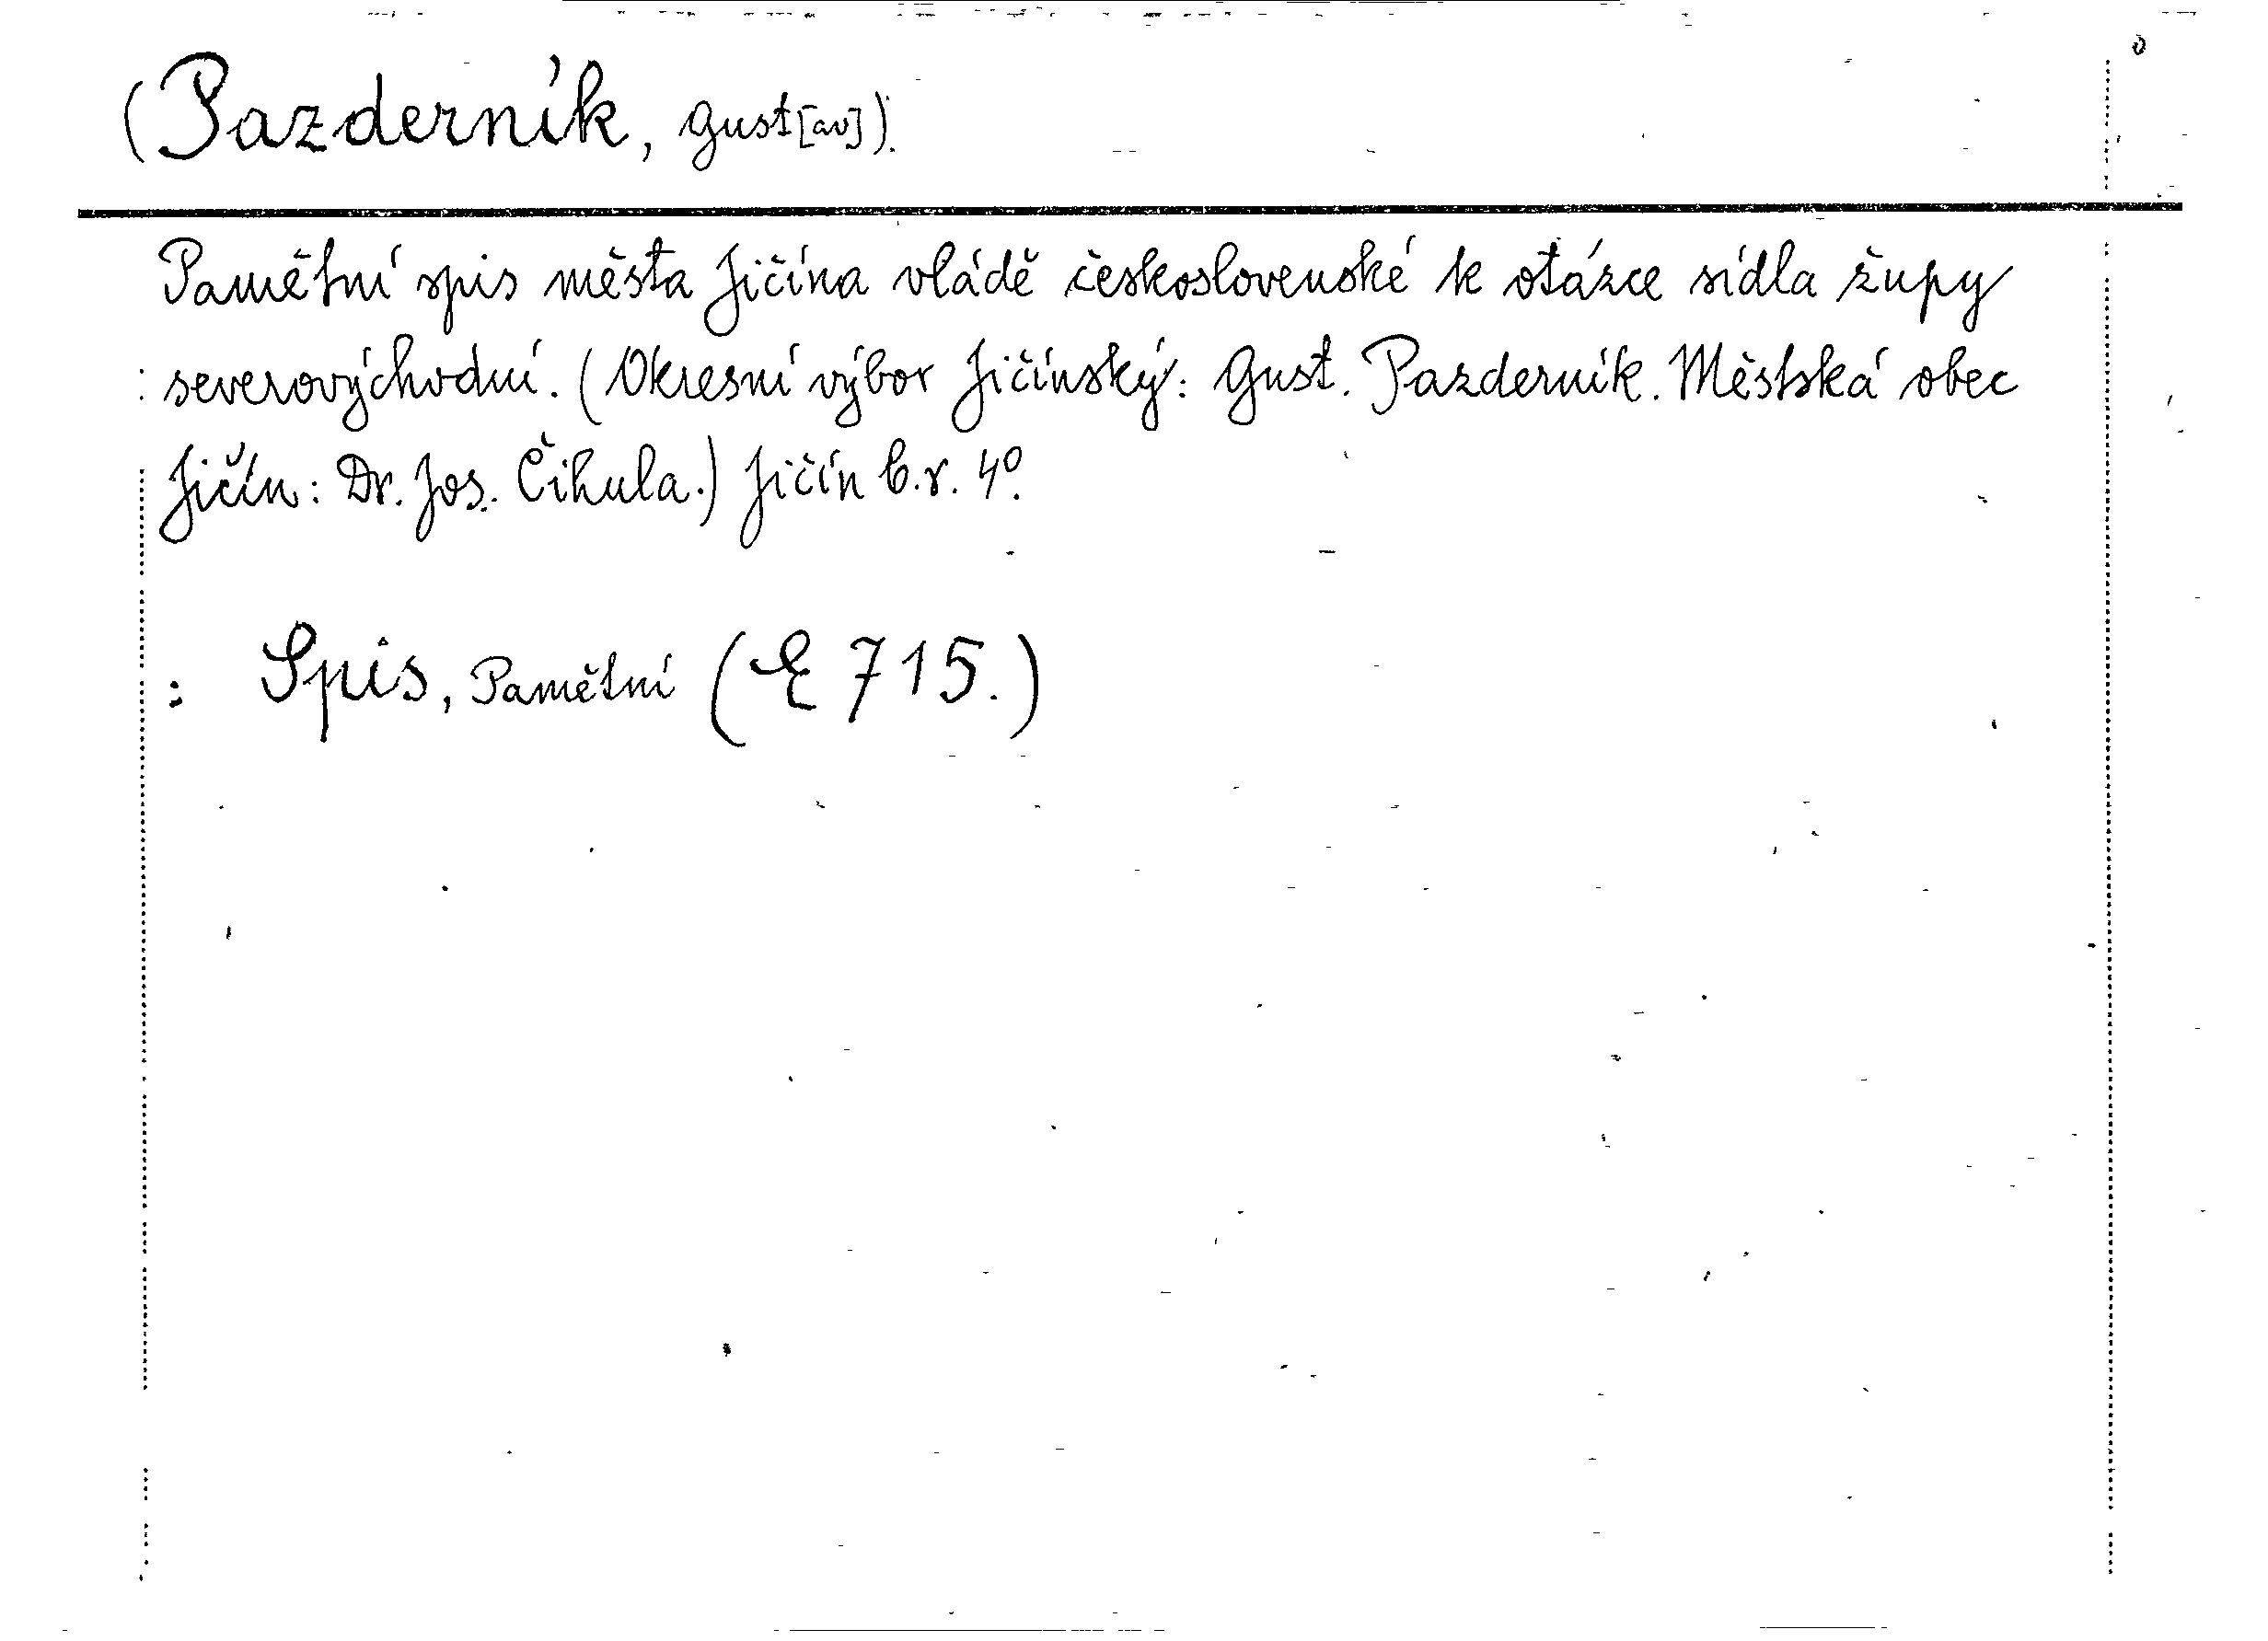 (Pazderník, Gust[av]).
Pamětní spis města Jičína vládě československé k otázce sídla župy
severovýchodní. (Okresní výbor Jičínský: Gust. Pazderník. Městská obec
Jičín: Dr. Jos. Čihula.) Jičín b.r. 4º.
: Spis, Pamětní (E 715.)